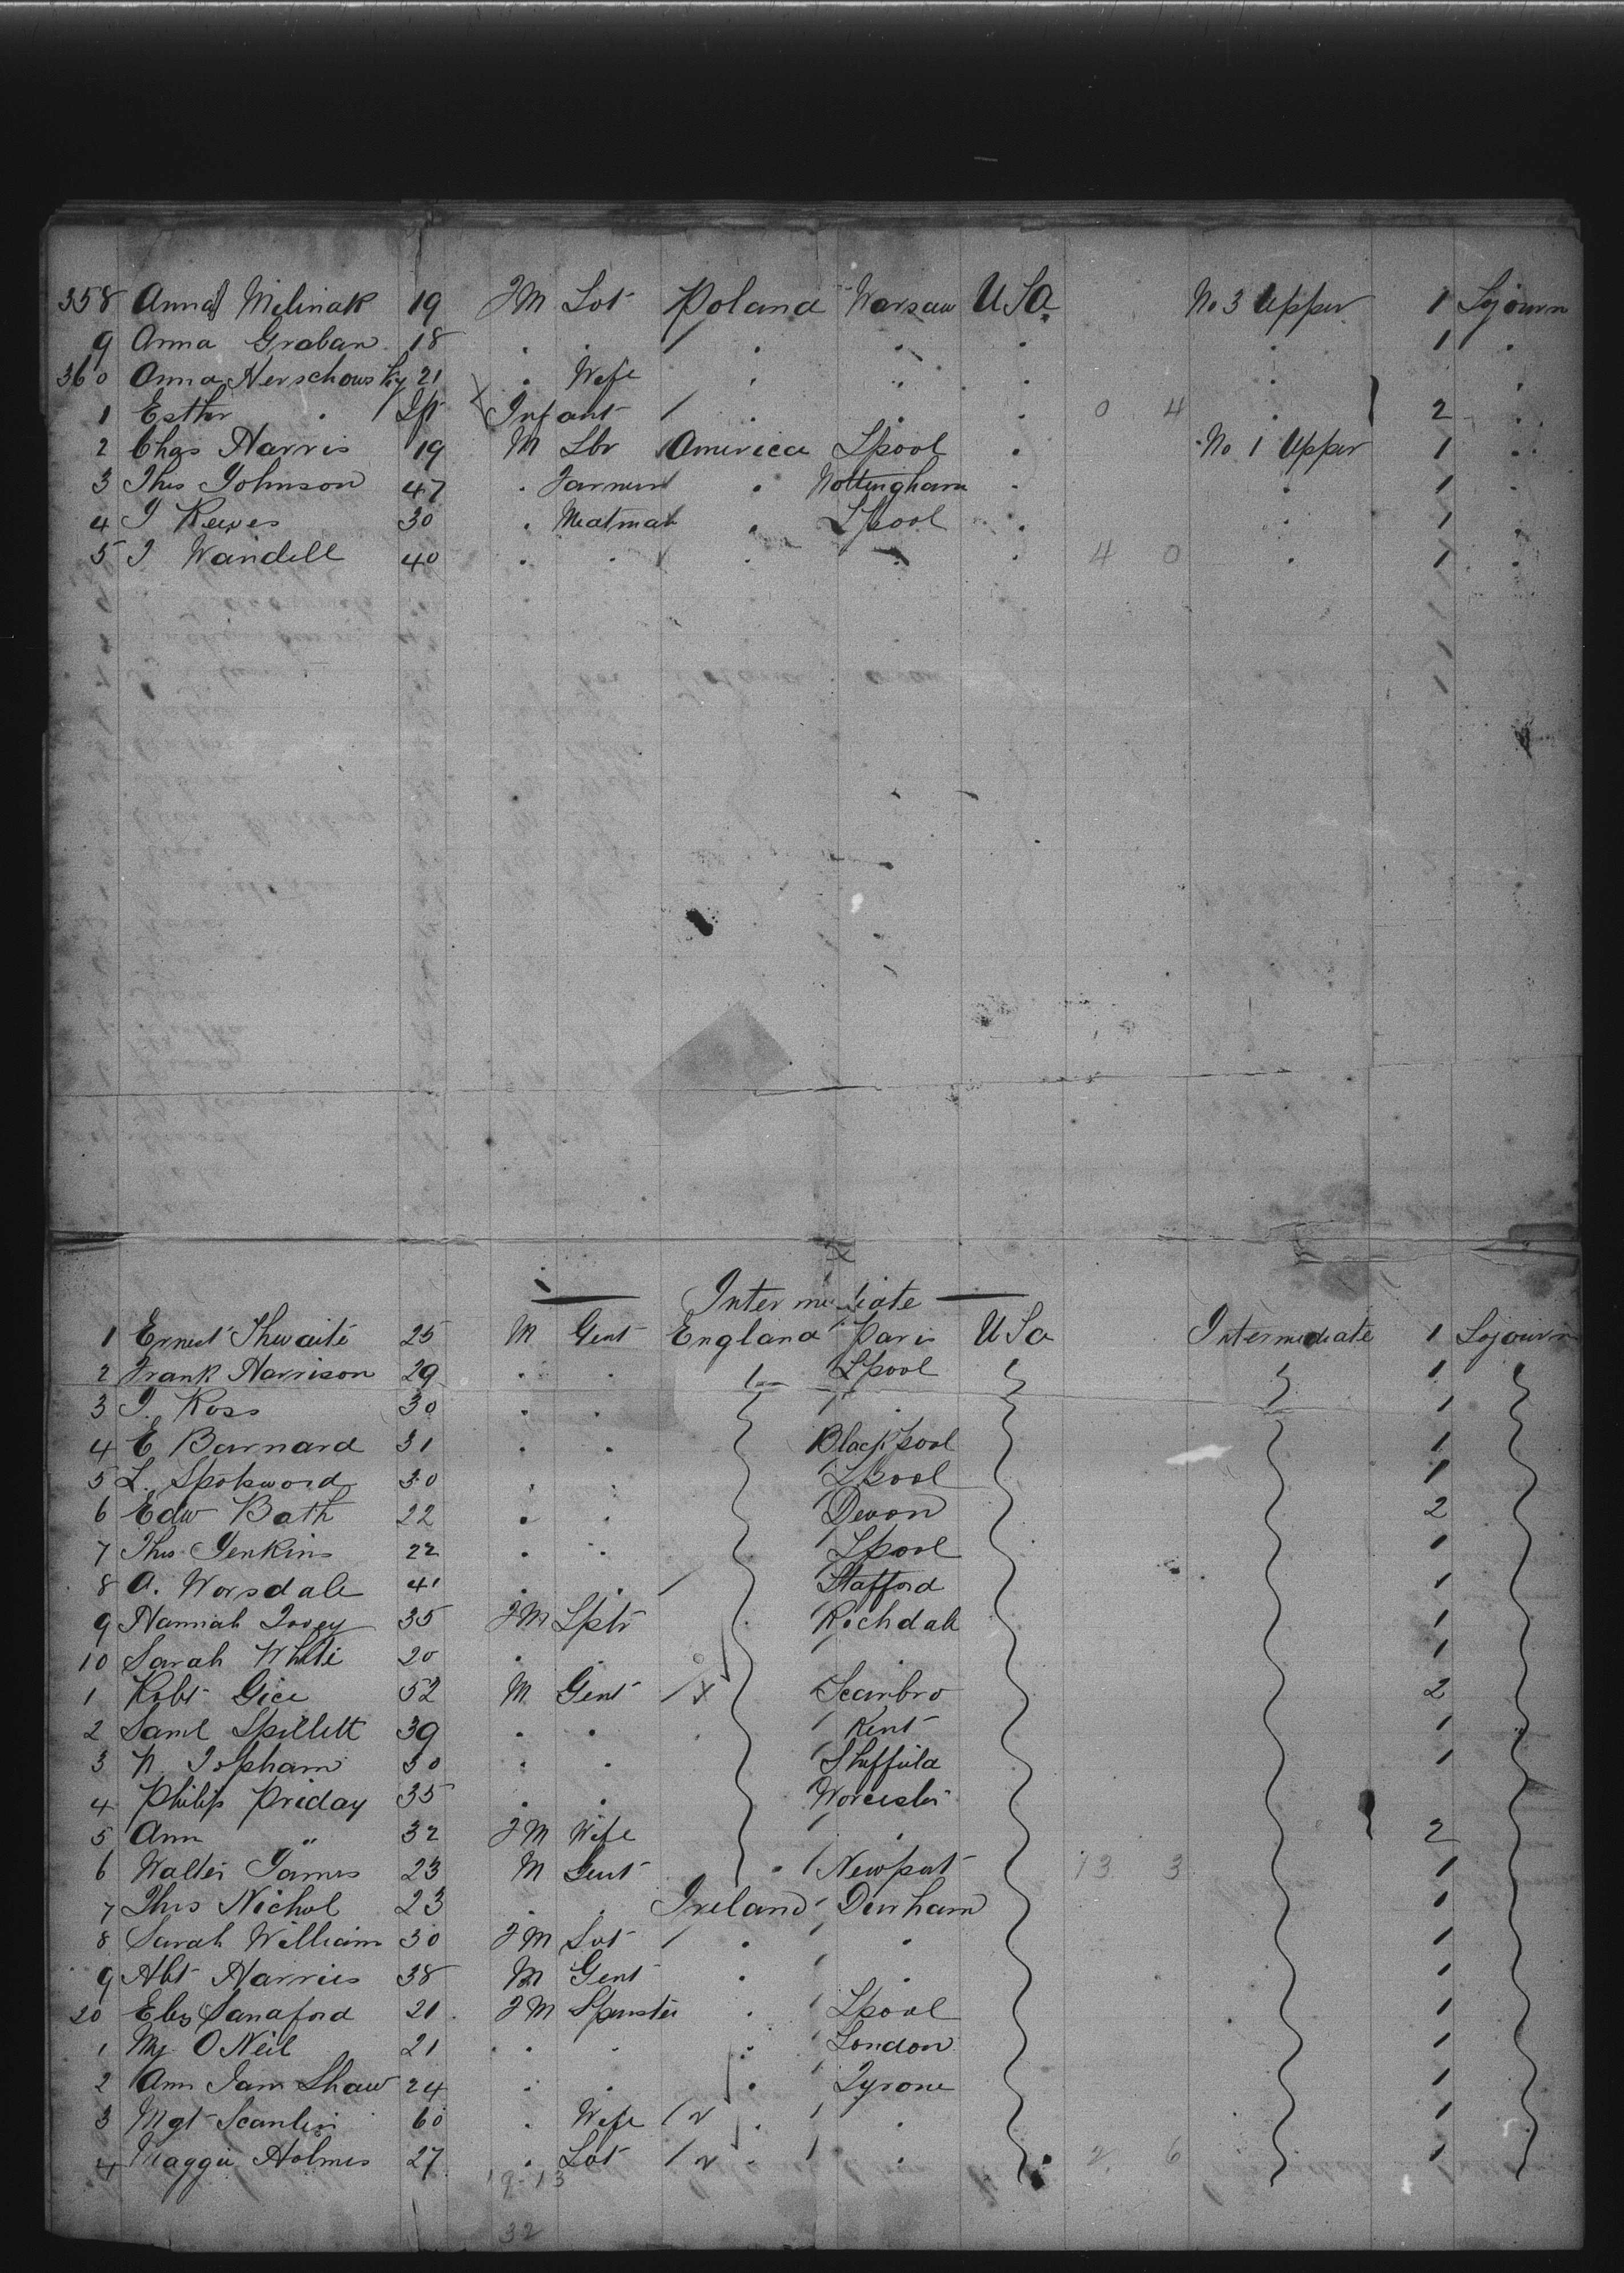 358 Anna Melinak 19 FM Svt Poland Warsaw USA No 3 Upper 1 Sojourn
9 Anna Graban 18 . . / . . . . 1 .
360 Anna Herschowsky 21 . Wife . . . .
1 Esther . Inft Infant / . . . 0 4 . 2 .
2 Chas Harris 19 M Lbr America Lpool . No 1 Upper 1 .
3 Thos Johnson 47 . Farmer . Nottingham . . 1 .
4 J Reeves 30 . Meatman . Lpool . . 1 .
5 J Wandell 40 . . . . . 4 0 . 1 .
Intermediate
1 Ernest Thwaite 25 M Gent England Paris USA Intermediate 1 Sojourn
2 Frank Harrison 29 . . Lpool 1
3 J. Ross 30 . . . 1
4 E Barnard 31 . . Blackpool 1
5 L. 30 . . Lpool 1
6 Edw Bath 22 . . Devon 2
7 Thos Jenkins 22 . . Lpool 1
8 A. Worsdale 41 . . / Stafford 1
9 Hannah 35 FM Spstr Rochdale 1
10 Sarah White 20 . . 1
1 Robt Gice 52 M Gent / x Scarbro 2
2 Saml Spillett 39 . . Kent 1
3 N Topham 30 . . Sheffield 1
4 Philip Priday 35 . . Worcester
5 Ann " 32 FM Wife . 2
6 Walter James 23 M Gent . / Newport 13 3 1
7 Thos Nichol 23 . . Ireland Durham 1
8 Sarah William 30 FM Svt / . . 1
9 Abt Harries 38 M Gent . . 1
20 Eliz Sanaford 21 FM Spinster . Lpool 1
1 My O Neil 21 . . . London 1
2 Ann Jane Shaw 24 . . . Tyrone 1
3 Mgt Scanlin 60 . Wife / . . 1
4 Maggie Holmes 27 . Svt / . 2 6 1
19-13
32